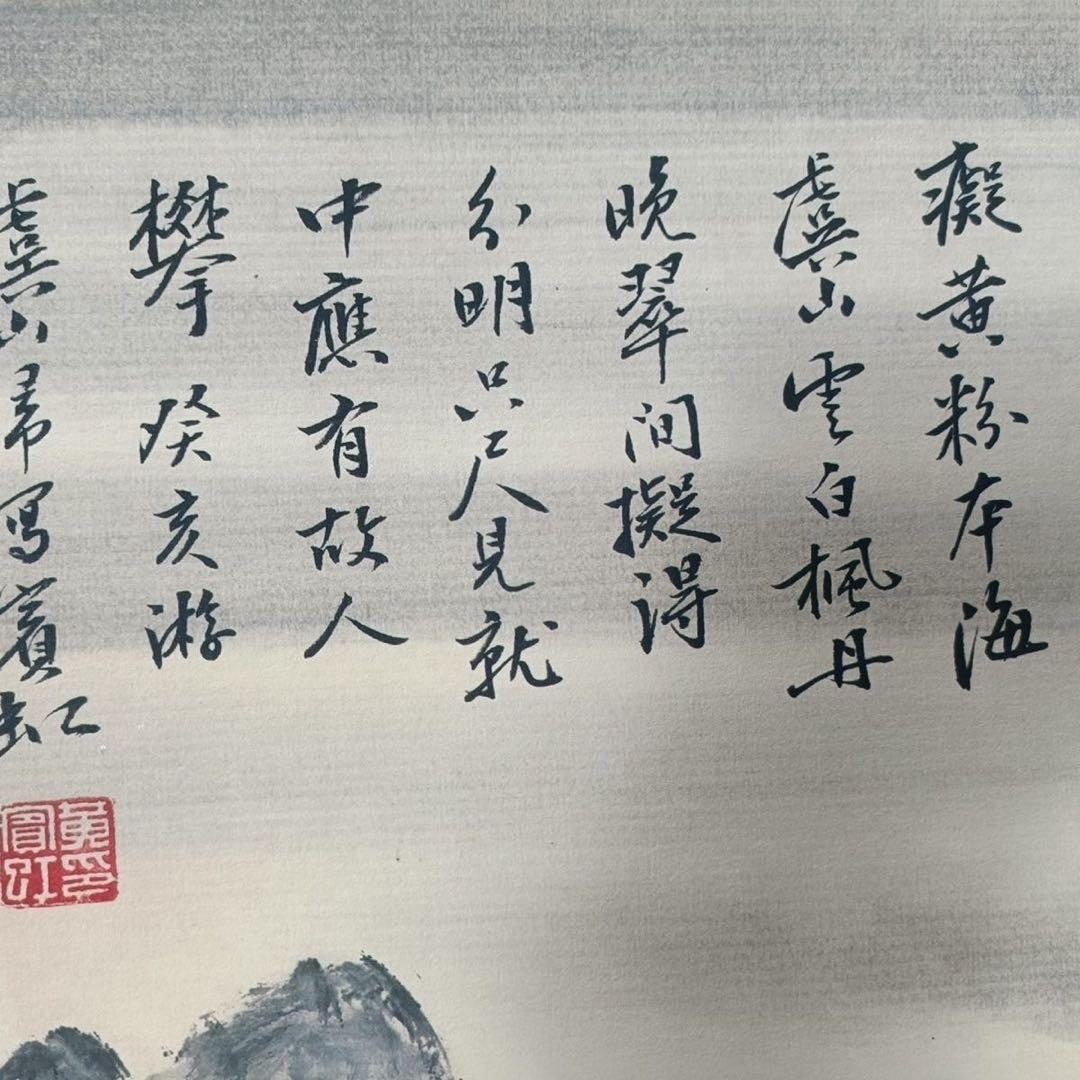 癡黄粉本海
虞山雲白楓丹
晚翠间擬得
分明只尺人見就
中應有故人
攀 癸亥游
虞山歸寫賓虹
黄賓虹印